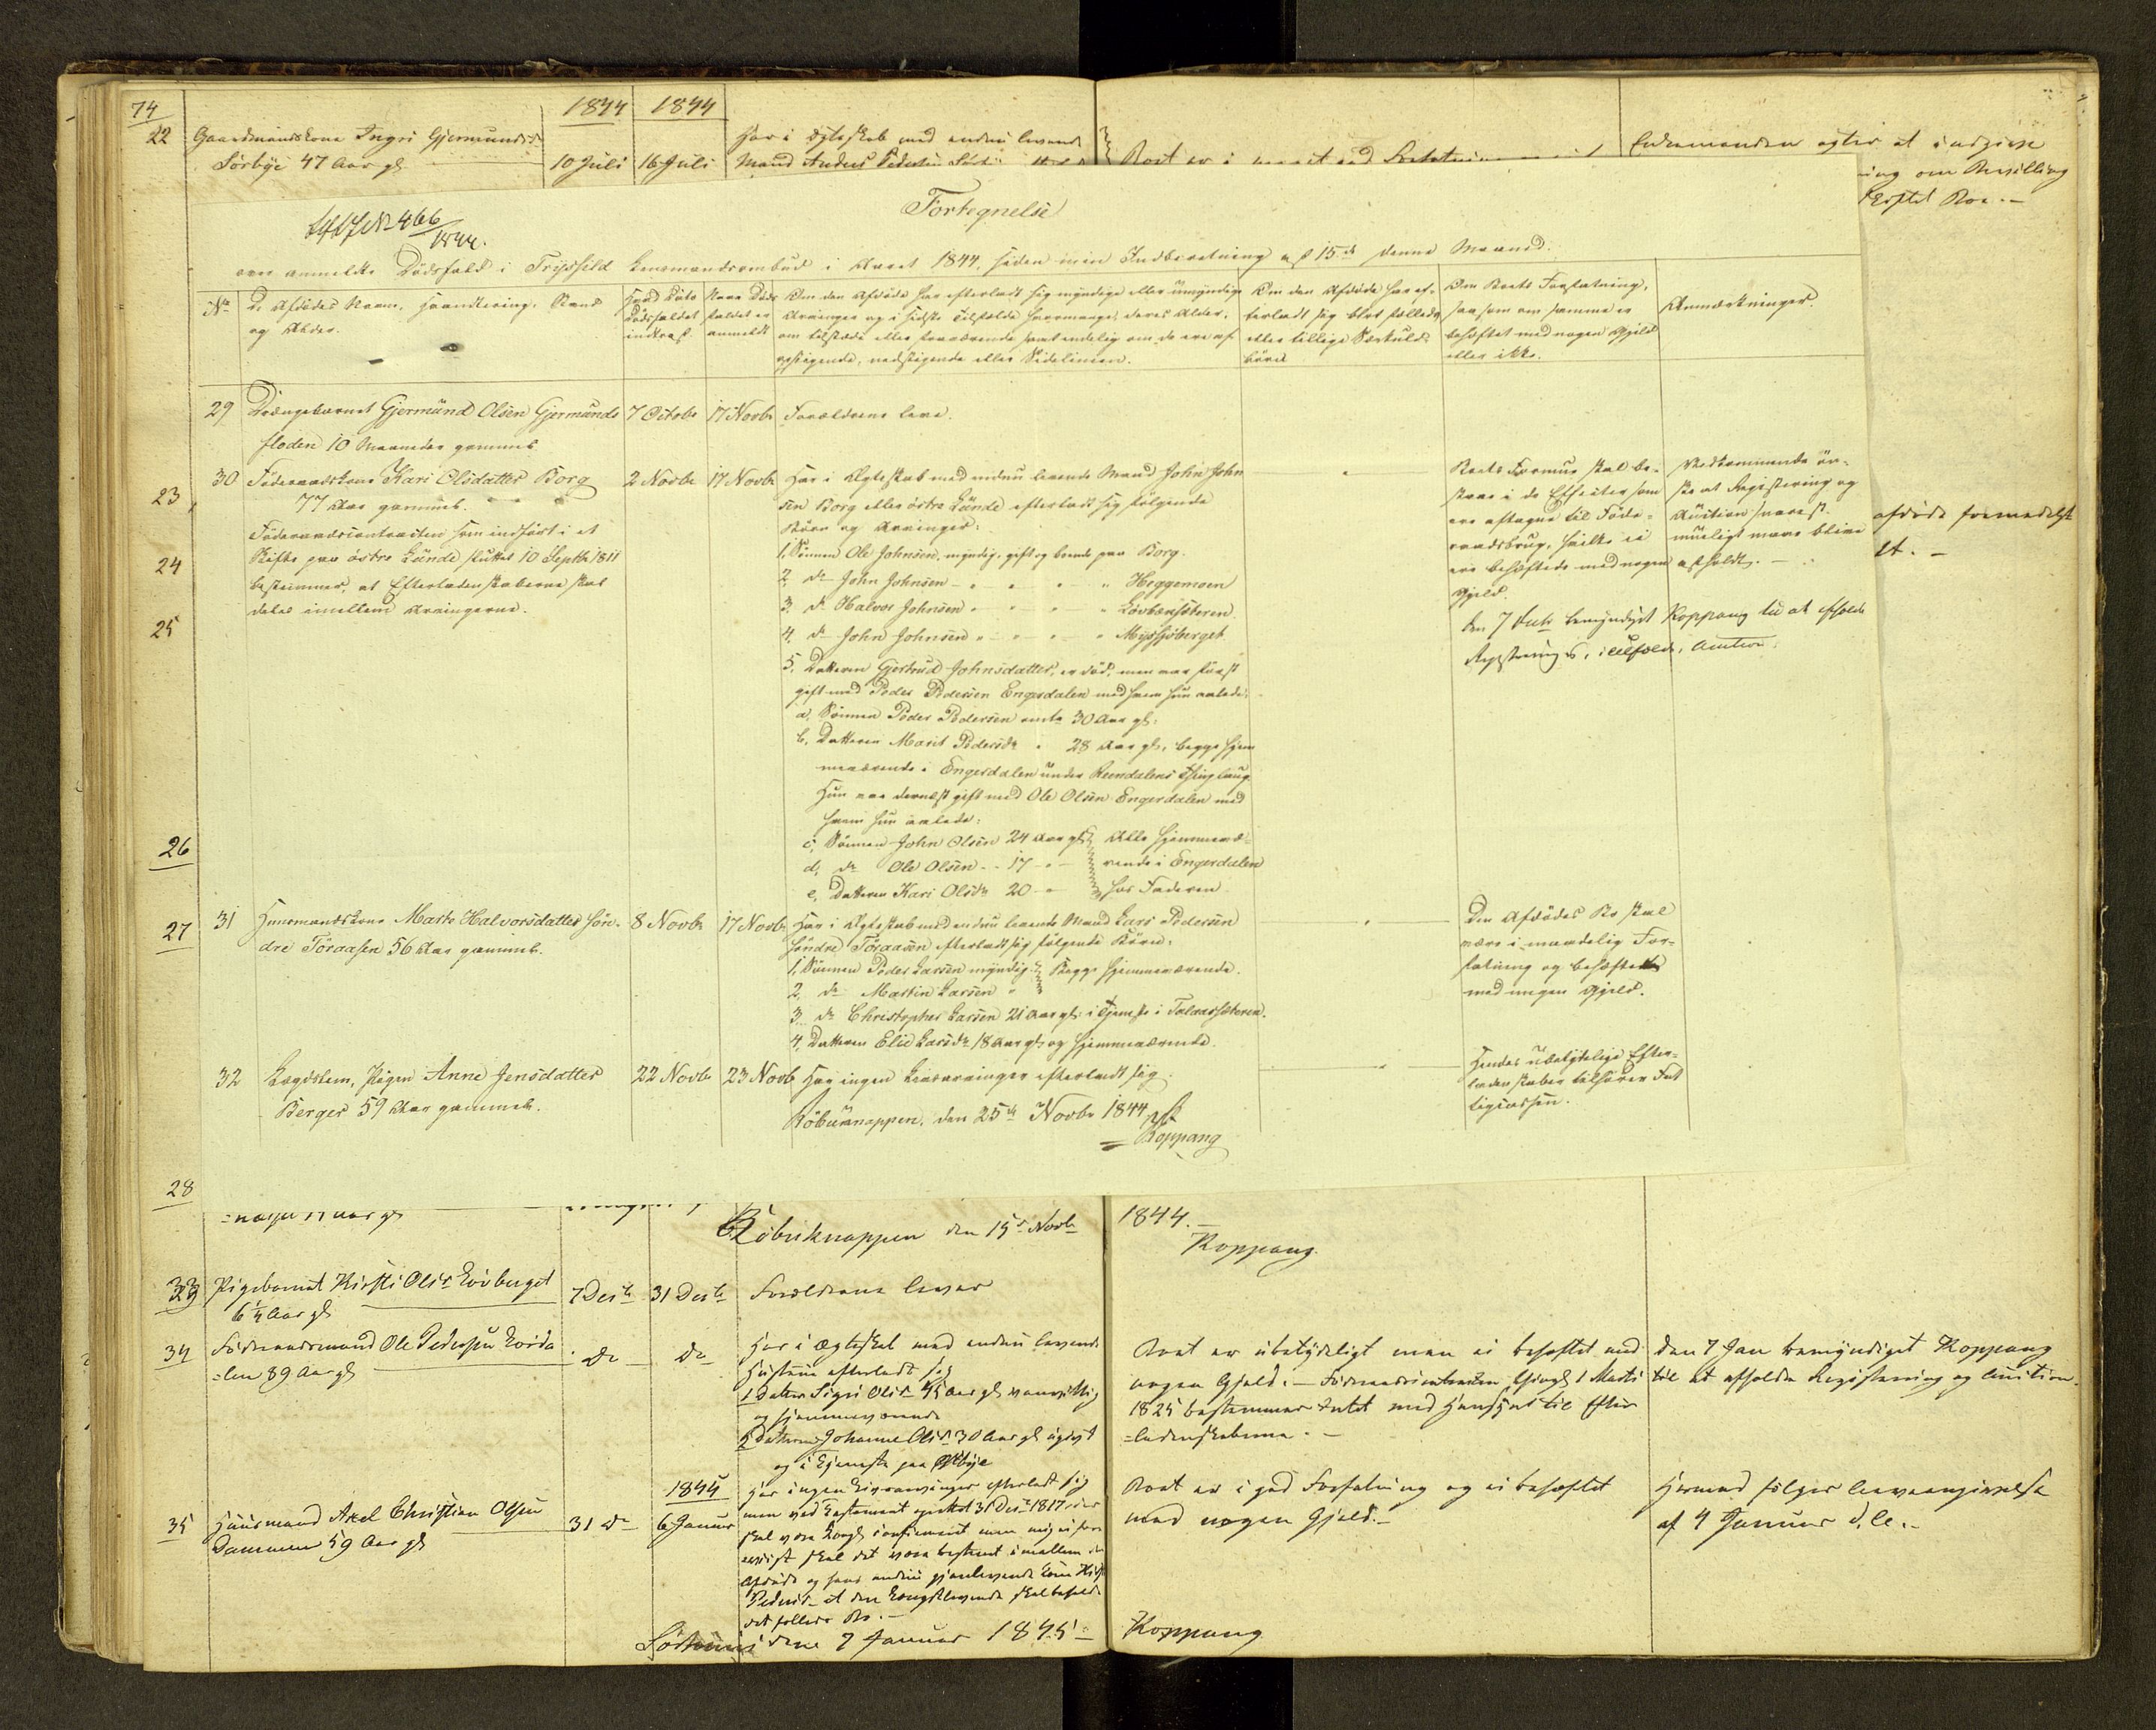 74
1844 1844
22 Gaardmandskone Ingri Gjermundsd
Sörbye 47 Aar gl 10 Juli 16 Juli
Har i Ægteskab med endnu levende
Mand Anders Pedersen
Boet er i
Enkemanden agter at indgive
ning om Bevilling
Uskiftet Boe. -
No 466
1844.
Fortegnelse
over anmeldte Dödsfald i Trysild Lensmandsombud i Aaret 1844, siden min Indberetning af 15de denne Maaned.
No
De Afdödes Navn, Haandtering, Stand
og Alder.
Hvad Dato
Dödsfaldet
indtraf.
Naar Döds
faldet er
anmeldt
Om den Afdöde har efterladt sig myndige eller umyndige
Arvinger og i sidste Tilfælde hvormange, deres Alder,
om tilstæde eller fraværende samt endelig om de ere af
opstigende, nedstigende eller Sidelinien.
Om den Afdöde har ef-
terladt sig blot fælleds
eller tillige Særkulds
börn
Om Boets Forfatning,
saasom om samme er
behæftet med nogen Gjeld
eller ikke.
Anmærkninger.
29 Drængebarnet Gjermund Olsen Gjermunds
floden 10 Maaneder gammel.
7 Octobr 17 Novbr Forældrene leve.
30 Föderaadskone Kari Olsdatter Borg
77 Aar gammel.
Föderaadscontracten som indfört i et
Skifte paa östre Lunde sluttet 10 Septbr 1811
bestemmer, at Efterladenskaberne skal
deles imellem Arvingerne.
2 Novbr 17 Novbr
Har i Ægteskab med endnu levende Mand John John
sen Borg eller östre Lunde efterladt sig fölgende
Börn og Arvinger:
1, Sönnen Ole Johnsen, myndig, gift og boende paa Borg.
2, do John Johnsen - " - " - " Heggemoen
3, do Halvor Johnsen " - " - " Lövbersæteren
4, do John Johnsen " - " - " Myssjöberget
5, Datteren Gjertrud Johnsdatter, er död, men var först
gift med Peder Pedersen Engerdalen med hvem hun avlede:
a, Sönnen Peder Pedersen omtr 30 Aar gl:
b, Datteren Marit Pedersdr " 28 Aar gl, begge hjem
meværende i Engerdalen under Rendalens Thinglaug
Hun var dernæst gift med Ole Olsen Engerdalen med
hvem hun avlede:
c, Sönnen John Olsen 24 Aar gl Alle hjemmevæ-
d, do Ole Olsen - 17 - " - rende i Engerdalen
e, Datteren Kari Olsdr 20 - " hos Faderen
Boets Formue skal be-
staae i de Effecter som
ere aftagne til Föde-
raadsbrug, hvilke ei
ere behæftede med nogen
Gjeld.
Vedkommende ön-
ske at Registering og
Auction snarest
mueligt maae blive
afholdt. -
den 7 bemyndiget Koppang til at afholde
Registering &, i tilfælde, Auction.
31 Huusmandskone Marte Halvorsdatter Sön-
dre Töraasen 56 Aar gammel.
8 Novbr 17 Novbr
Har i Ægteskab med endnu levende Mand Lars Pedersen
söndre Töraasen efterladt sig fölgende Börn:
1, Sönnen Peder Larsen myndig Begge hjemmeværende.
2, do Martin Larsen "
3, do Christopher Larsen 21 Aar gl i Tjeneste i
4, Datteren Elie Larsdr 18 Aar gl og hjemmeværende.
Den Afdödes Bo skal
være i maadelig For-
fatning og behæftet
med nogen Gjeld.
32 Lægdslem, Pigen Anne Jensdatter
Berger 59 Aar gammel.
22 Novbr 23 Novbr Har ingen Livsarvinger efterladt sig.
Hendes ubetydelige Efter-
ladenskaber tilhörer Fat
tigcassen.
Köbuknappen, den 25de Novbr 1844
Koppang
23
24
25
26
27
28
afdöde formedelst
lt. -
Köbuknappen den 15de Novbr 1844. -
Koppang.
33 Pigebarnet Kirsti Olsdr Lövberget
6 1/4 Aar gl
7 Decbr 31 Decbr Forældrene lever
34 Föderaadsmand Ole Pedersen Lörda
=len 89 Aar gl
do do
Har i Ægteskab med endnu levende
Hustrue efterladt sig
1 Datter Sigri Olsdr 45 Aar gl vanvittig
og hjemmeværende
2 Datteren Johanne Olsdr 30 Aar gl ugivt
og i Tjeneste paa Östbye
Boet er ubetydeligt men ei behæftet med
nogen Gjeld. - Föderaadscontracten 1 Marts
1825 bestemmer Intet med Hensyn til Efter
=ladenskaberne. -
den 7 Jan bemyndiget Koppang
til at afholde Registering og Auction.
35 Huusmand Axel Christian Olsen
Dammen 59 Aar gl
31 do
1845
6 Januar
Har ingen Livsarvinger efterladt sig
men ved Testament oprettet 31 Decbr 1817, der
skal være Kongl confirmeret men mig ei fore
=viist skal det være bestemt imellem den
Afdöde og hans endnu gjenlevende Kone
Pedersdr at den Længstlevende skal beholde
det fælleds Bo. -
Boet er i god Forfatning og ei behæftet
med nogen Gjeld. -
Hermed fölger
af 4 Januar d. A. -
den 7 Januar 1845 -
Koppang